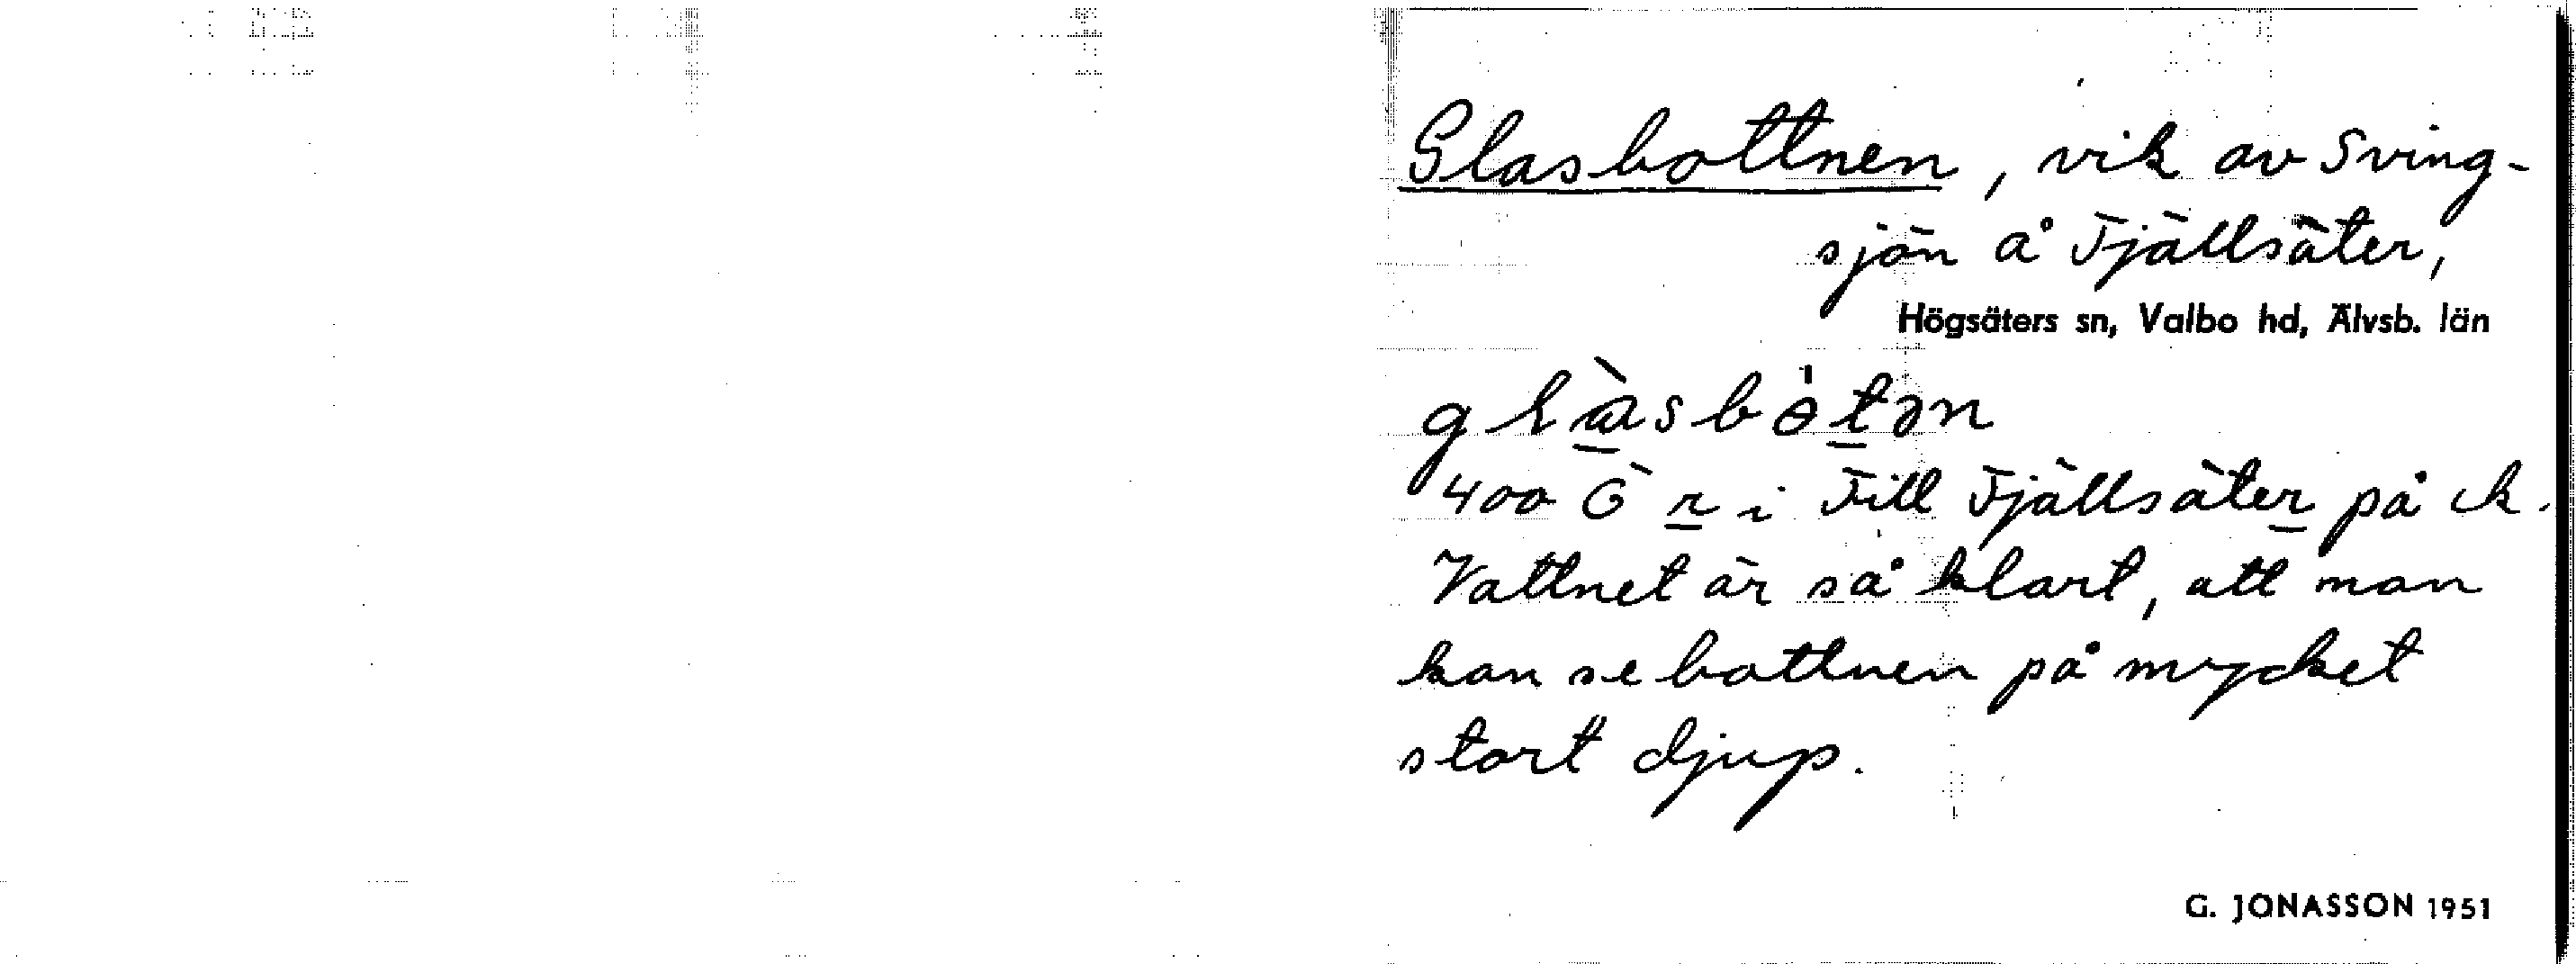 Glasbottnen, vik av Sving-
sjön å Fjällsäter,
Högsäters sn, Valbo hd, Älvsb. län
400 Ö r i Fjällsäter på ek.
Vattnet är så klart, att man
kan se bottnen på mycket
stort djup.
G. JONASSON 1951